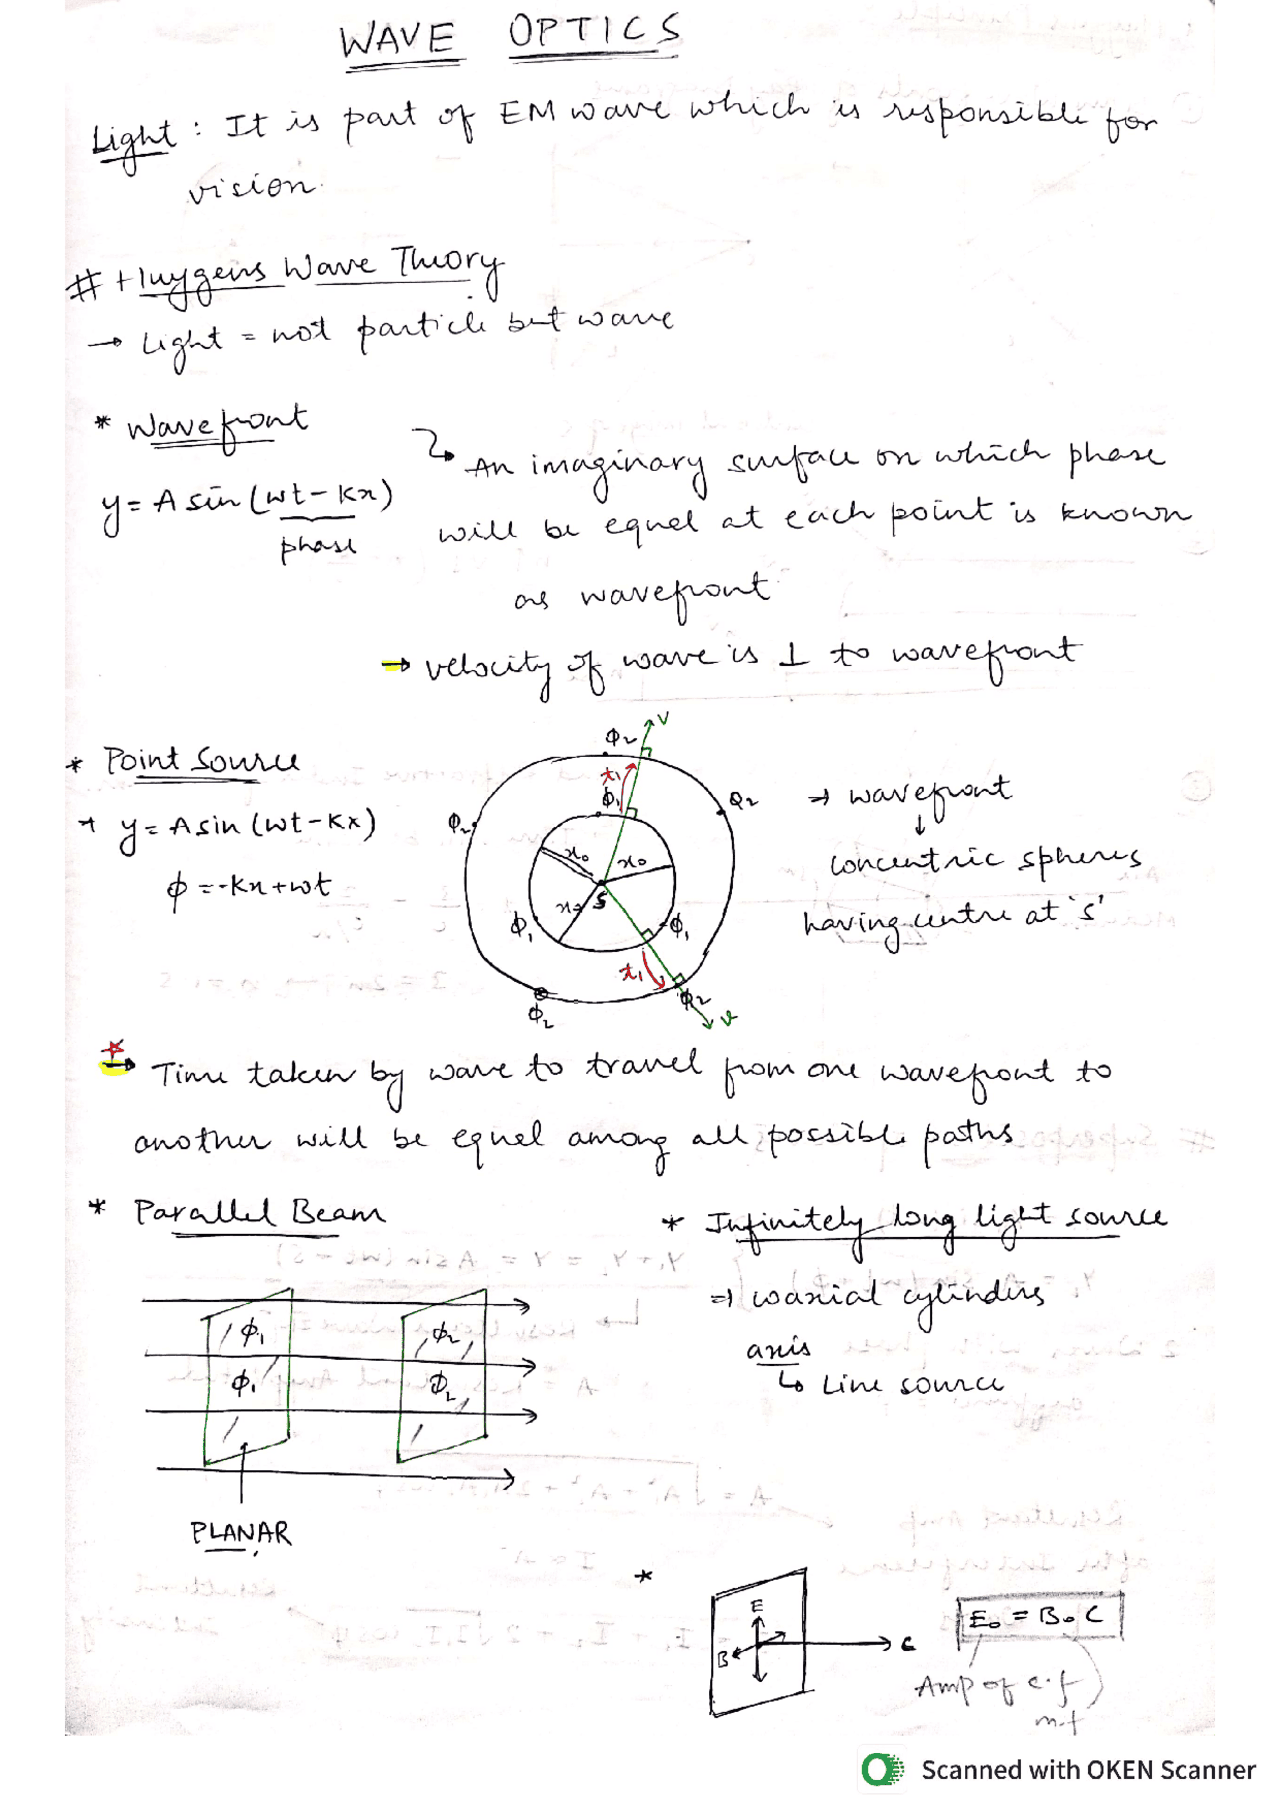 WAVE OPTICS
Light : It is part of EM wave which is responsible for
vision.
# Huygens Wave Theory
→ Light = not particle but wave
* Wavefront
y = A sin (wt - kx)
phase
↳ An imaginary surface on which phase
will be equal at each point is known
as wavefront
→ velocity of wave is ⊥ to wavefront
* Point Source
→ y = A sin (wt - kx)
ϕ = -kx + wt
V
ϕ2
t1
ϕ1
ϕ2
ϕ2
x0
x0
x0
S
ϕ1
ϕ1
t1
ϕ2
ϕ2
v
⇒ wavefront
↓
concentric spheres
having centre at 's'
→ Time taken by wave to travel from one wavefront to
another will be equal among all possible paths
* Parallel Beam
ϕ1
ϕ2
ϕ1
ϕ2
PLANAR
* Infinitely long light source
⇒ coaxial cylinders
axis
↳ Line source
*
E
B
C
E0 = B0 C
Amp of e.f
m.f
Scanned with OKEN Scanner